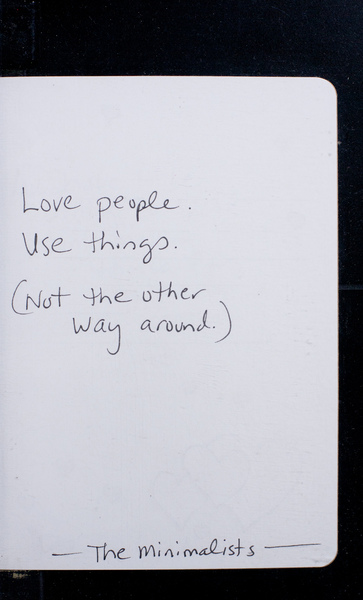 Love people.
Use things.
(Not the other
way around.)
— The Minimalists —